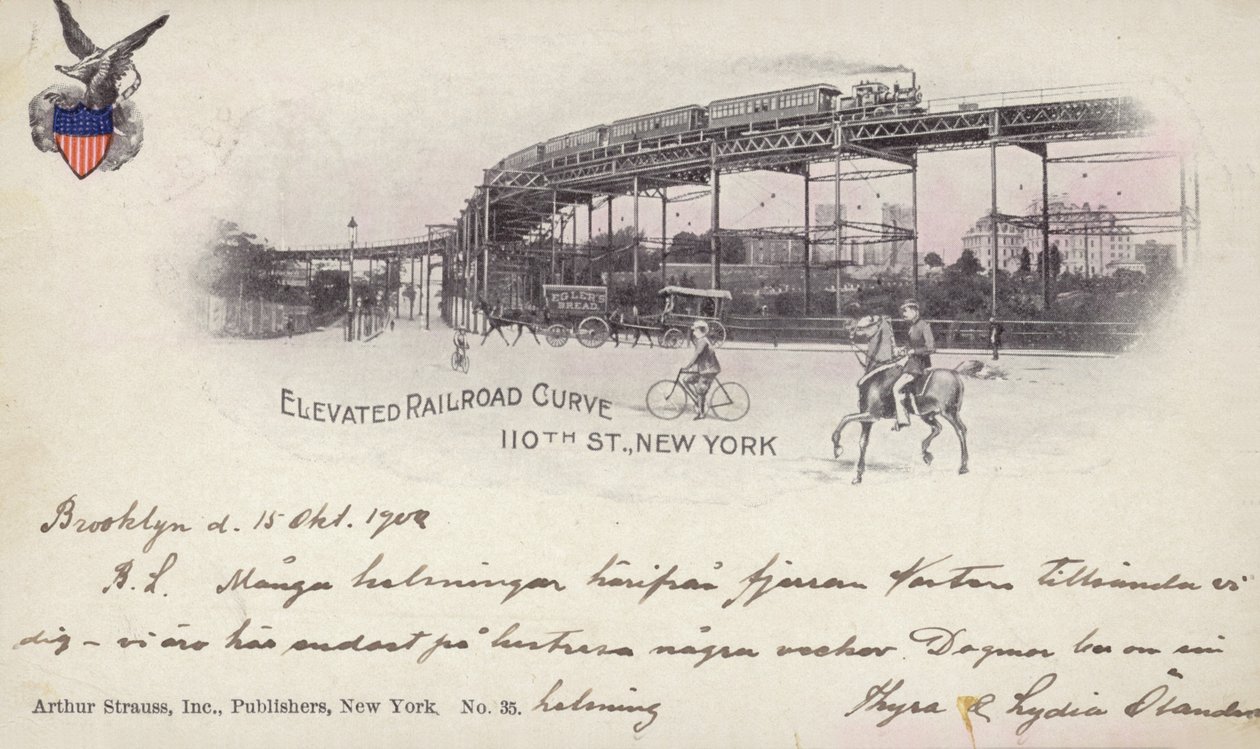 EGLER'S
BREAD
ELEVATED RAILROAD CURVE
110TH ST., NEW YORK
Brooklyn d. 15 Okt. 1900
B. L. Många helsningar härifrån fjerran Vestern tillsända vi
dig – vi äro här endast på lustresa några veckor. Dagmar ber om sin
helsning
Thyra & Lydia
Arthur Strauss, Inc., Publishers, New York. No. 35.